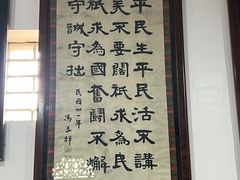 平民生平民活不講
美不要闊祇求為民
祇求為國奮鬥不懈
守誠守拙
民國卅一年
馮玉祥